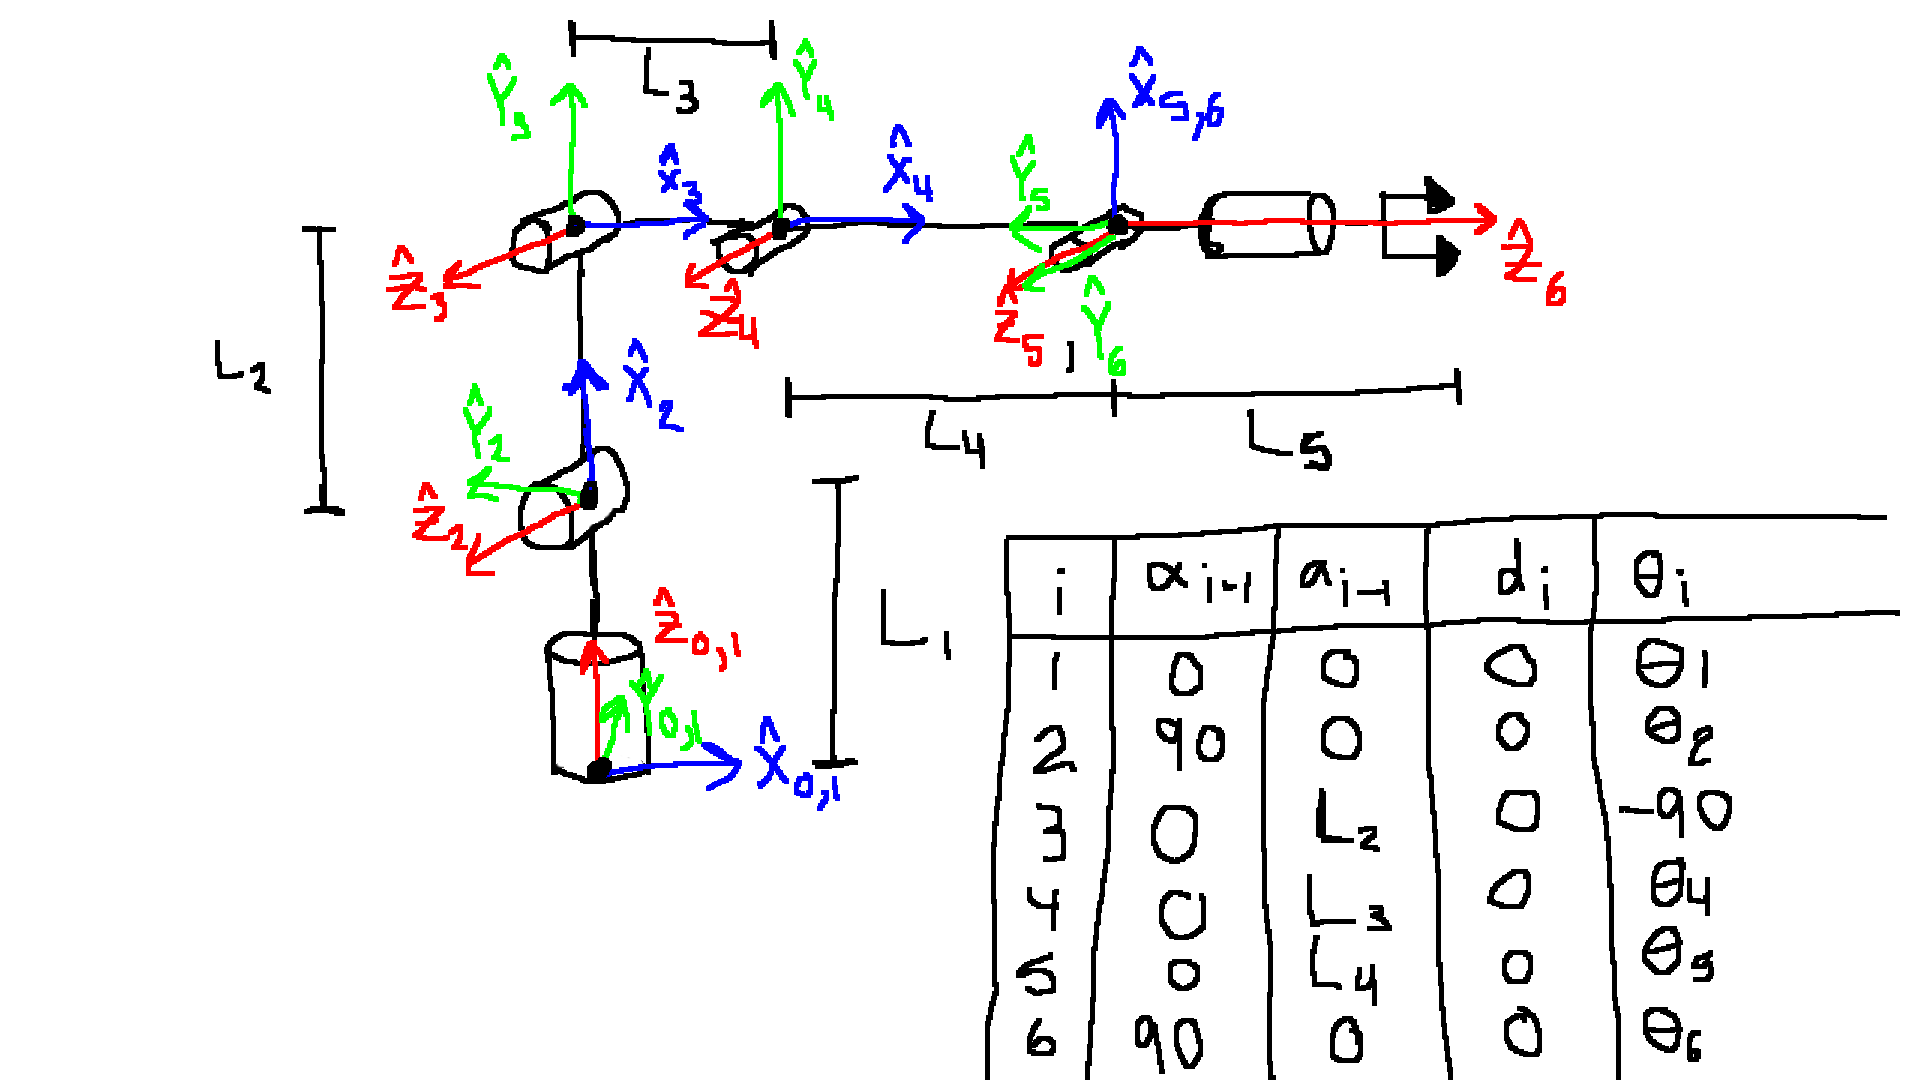 L3
Ŷ3
Ŷ4
X̂5,6
X̂3
X̂4
Ŷ5
Ẑ3
Ẑ4
Ẑ5,
Ŷ6
Ẑ6
L2
X̂2
Ŷ2
Ẑ2
L4
L5
L1
Ẑ0,1
Ŷ0,1
X̂0,1
i αi-1 ai-1 di θi
1 0 0 0 θ1
2 90 0 0 θ2
3 0 L2 0 -90
4 0 L3 0 θ4
5 0 L4 0 θ5
6 90 0 0 θ6